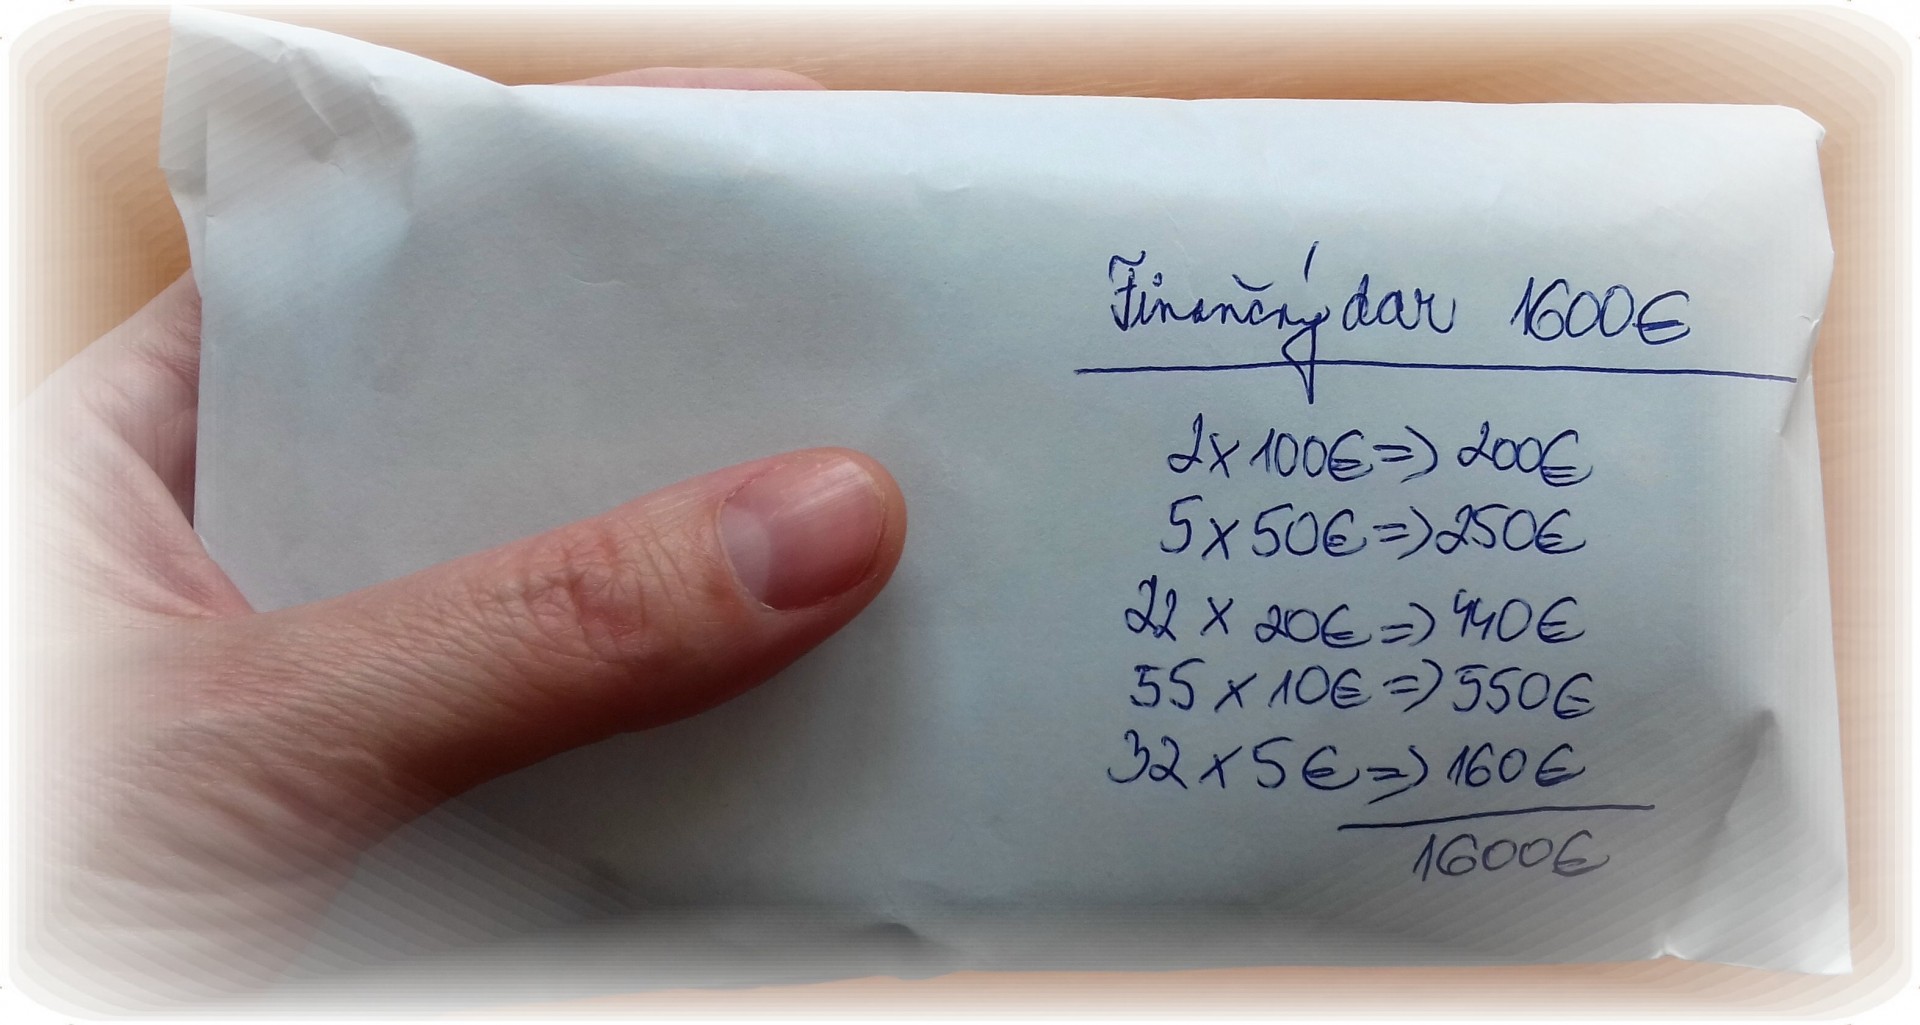 Finančný dar 1600€
2x 100€ => 200€
5x 50€ => 250€
22 x 20€ => 440€
55 x 10€ => 550€
32 x 5€ => 160€
1600€